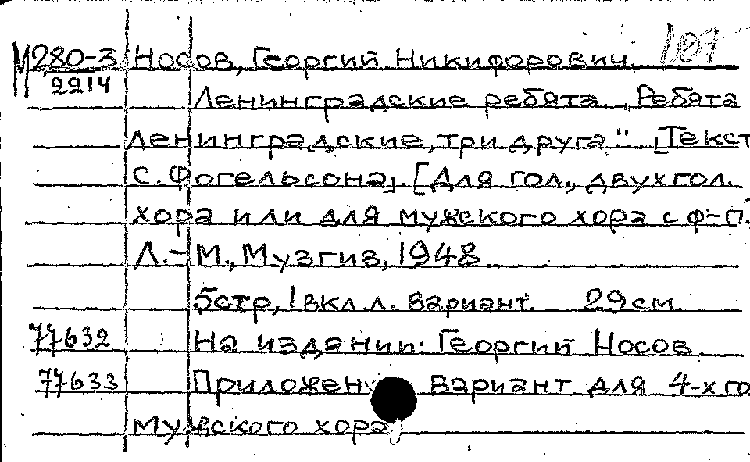 М280-3 Носов, Георгий Никифорович. 107
2214
Ленинградские ребята. „Ребята
ленинградские, три друга" [Текст
С. Фогельсона]. [Для гол., двухгол.
хора или для мужского хора с ф-п.
Л.-М., Музгиз, 1948
5стр, 1 вкл.л. вариант. 29см
77632 На издании: Георгий Носов
77633 Приложен вариант для 4-х го
мужского хора